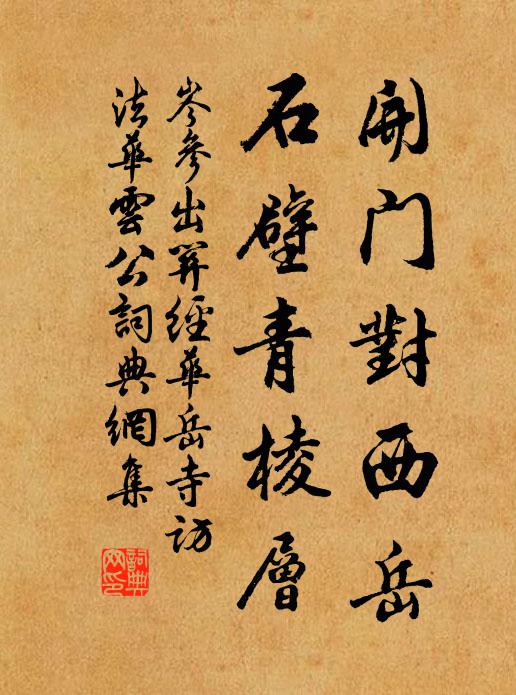 開門對西岳
石壁青棱層
岑參出關經華岳寺訪
法華雲公詞典網集
詞典網印